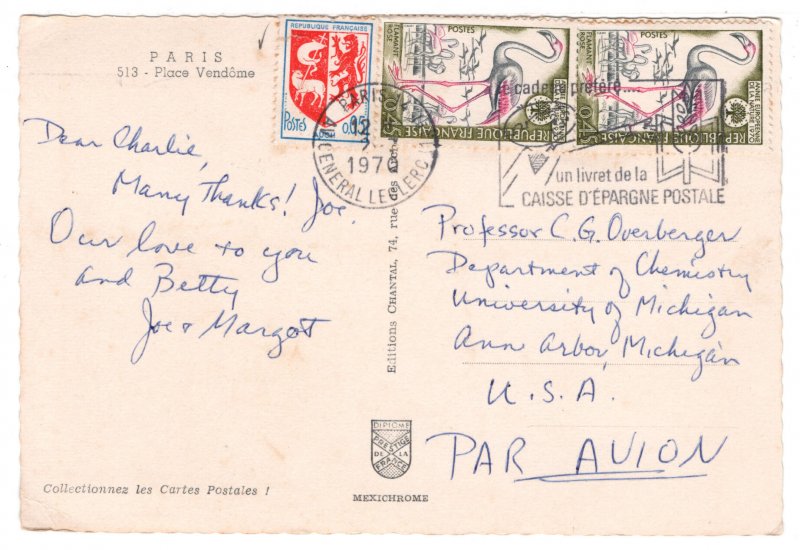 PARIS
513 - Place Vendôme
Dear Charlie,
Many Thanks! Joe.
Our love to you
and Betty
Joe & Margot
Collectionnez les Cartes Postales !
Editions CHANTAL, 74, rue des
DIPLOME
PRESTIGE
DE LA
FRANCE
MEXICHROME
REPUBLIQUE FRANÇAISE
POSTES
0,05
AUCH
POSTES
FLAMANT
ROSE
0,45
REPUBLIQUE FRANÇAISE
POSTES
FLAMANT
ROSE
0,45
REPUBLIQUE FRANÇAISE
ANNEE EUROPEENNE
DE LA NATURE 1970
PARIS
1970
AV. GENERAL LECLERC
le cadeau préféré....
un livret de la
CAISSE D'ÉPARGNE POSTALE
Professor C.G. Overberger
Department of Chemistry
University of Michigan
Ann Arbor, Michigan
U.S.A.
PAR AVION